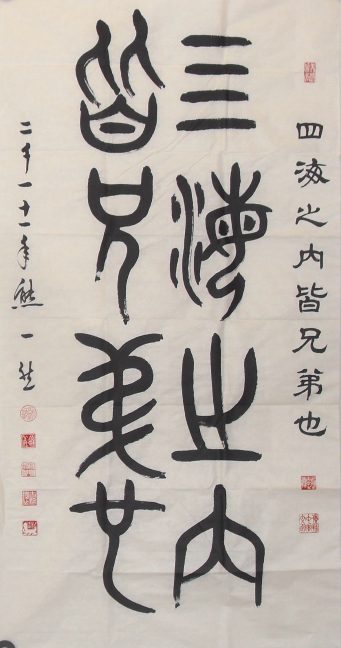 四海之内皆兄弟也
亖海之内
皆兄弟也
二千一十一年熊一然